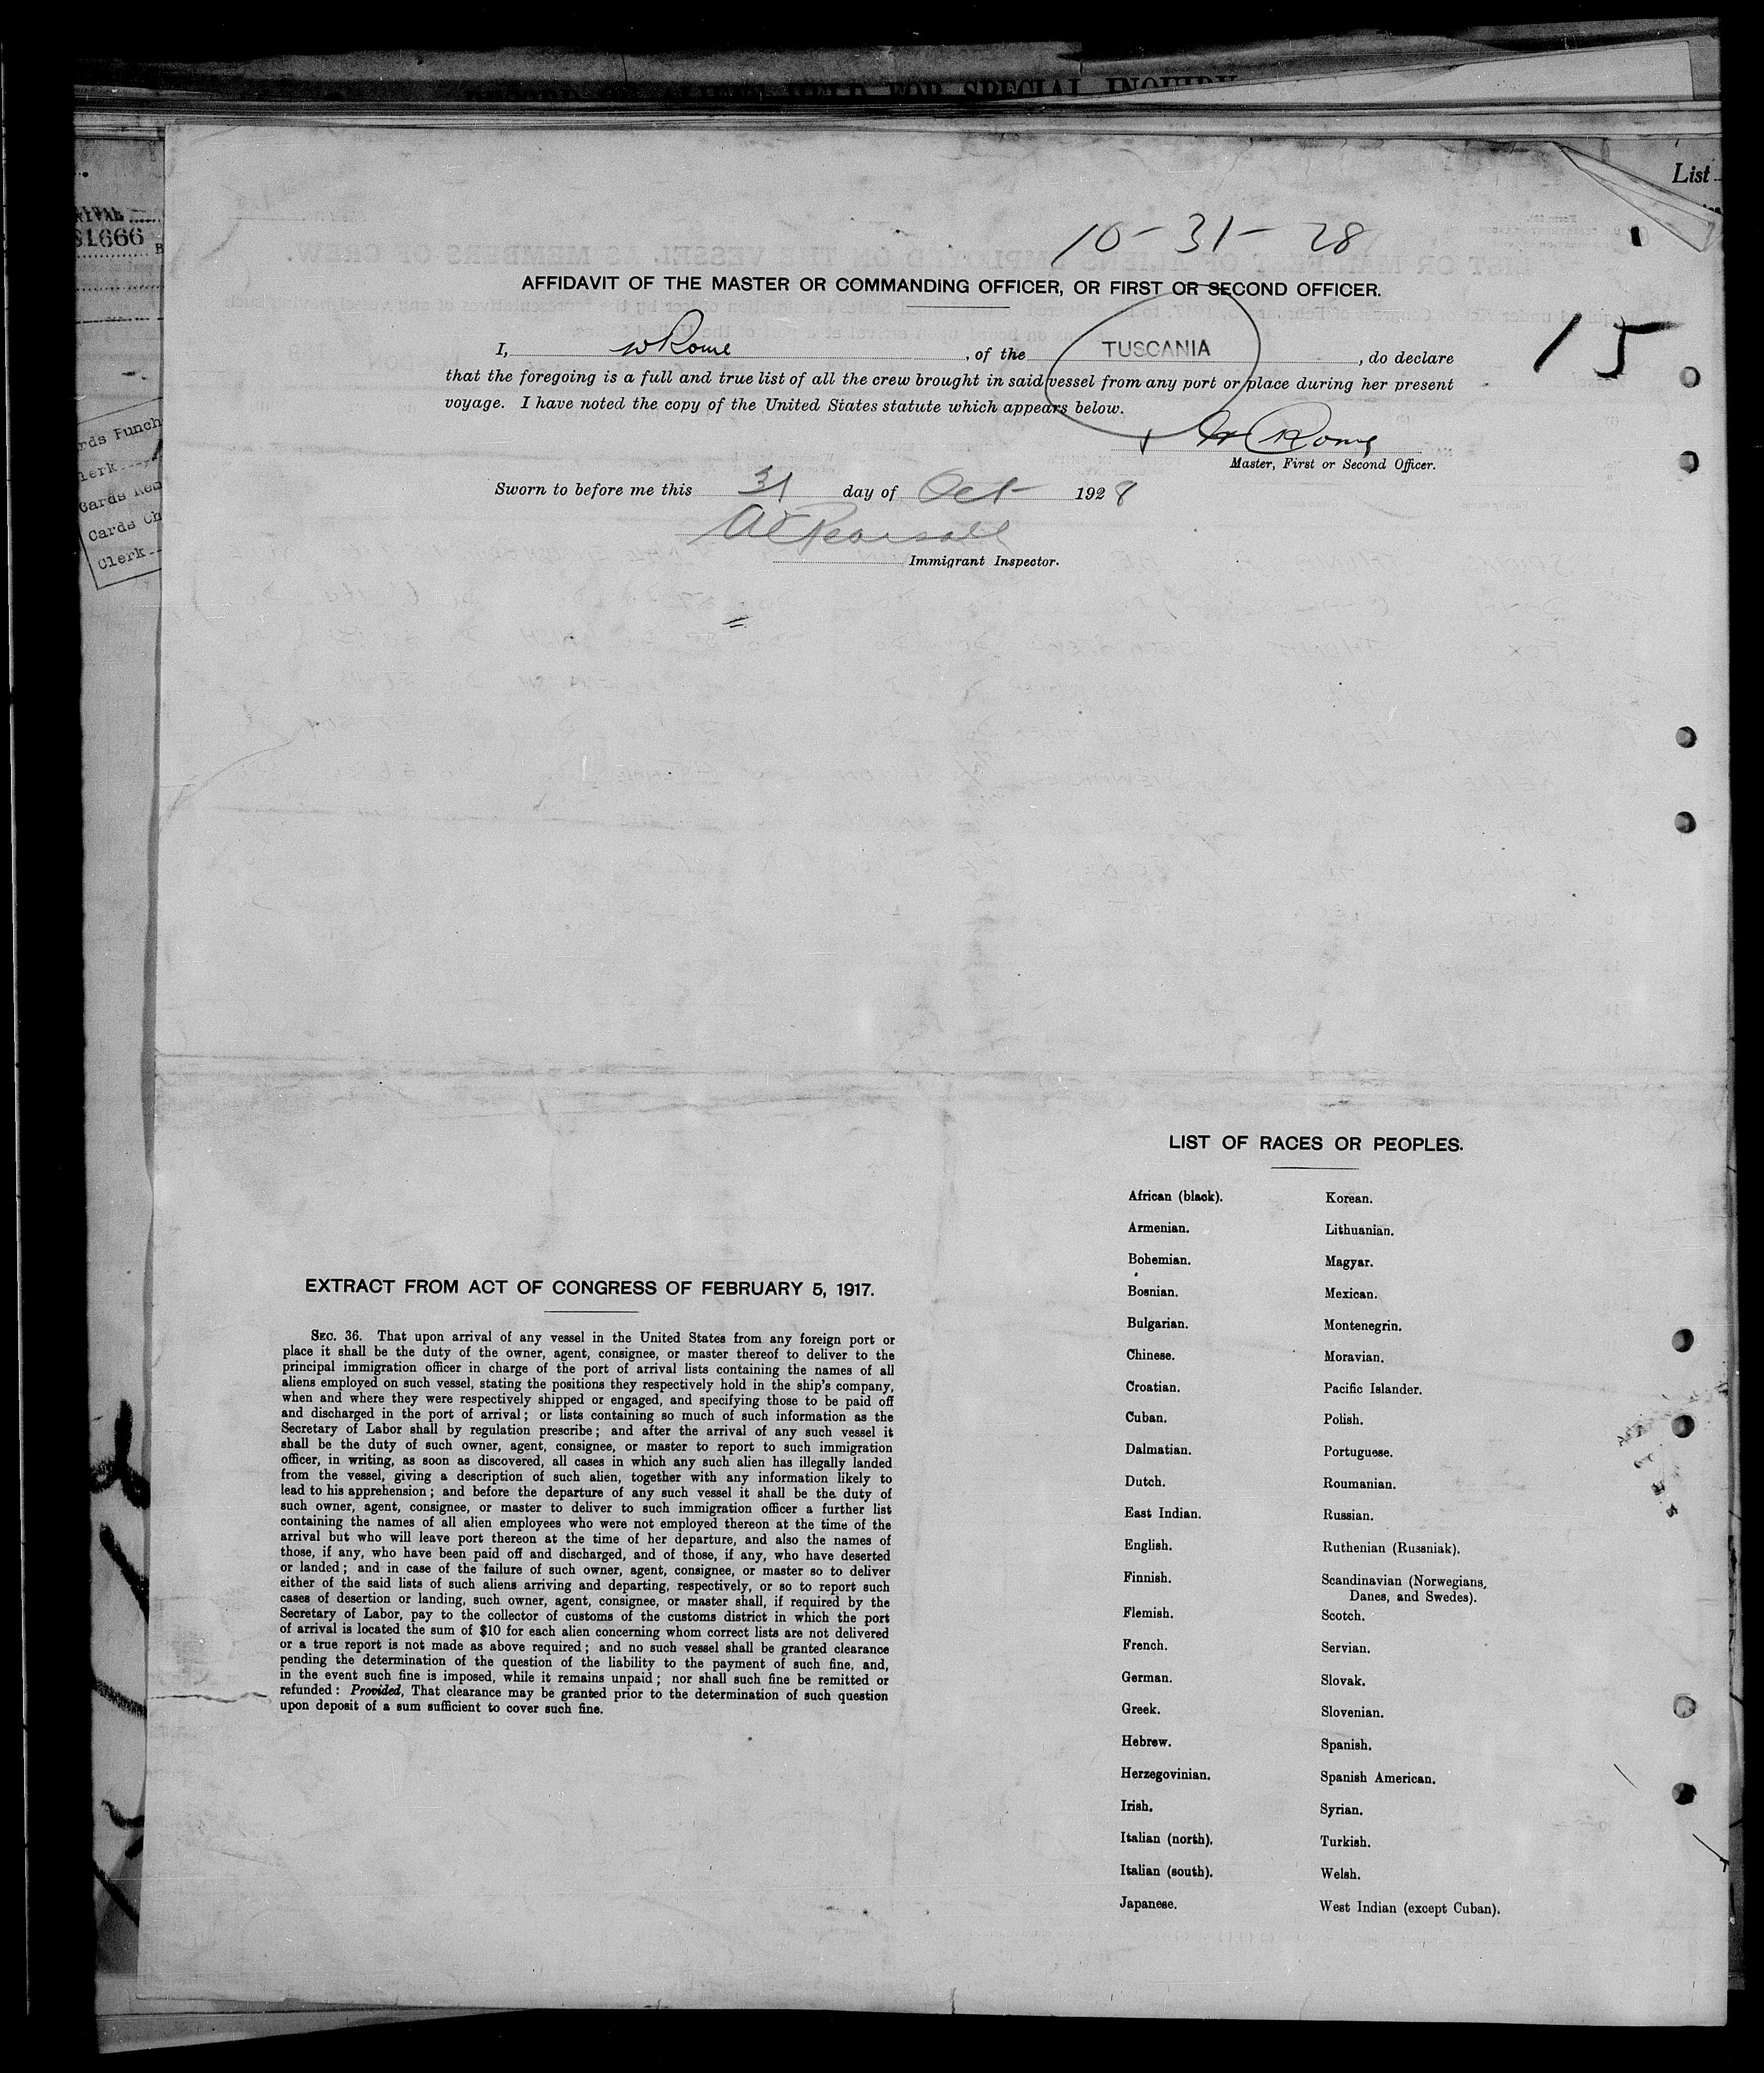 RECORD OF ALIENS HELD FOR SPECIAL INQUIRY
List
31666
rds Punch
lerk
Cards Ch
Clerk
10-31-28
AFFIDAVIT OF THE MASTER OR COMMANDING OFFICER, OR FIRST OR SECOND OFFICER.
15
I, W Rome, of the TUSCANIA, do declare
that the foregoing is a full and true list of all the crew brought in said vessel from any port or place during her present
voyage. I have noted the copy of the United States statute which appears below.
W Rome
Master, First or Second Officer.
Sworn to before me this 31 day of Oct 1928
Immigrant Inspector.
EXTRACT FROM ACT OF CONGRESS OF FEBRUARY 5, 1917.
SEC. 36. That upon arrival of any vessel in the United States from any foreign port or
place it shall be the duty of the owner, agent, consignee, or master thereof to deliver to the
principal immigration officer in charge of the port of arrival lists containing the names of all
aliens employed on such vessel, stating the positions they respectively hold in the ship's company,
when and where they were respectively shipped or engaged, and specifying those to be paid off
and discharged in the port of arrival; or lists containing so much of such information as the
Secretary of Labor shall by regulation prescribe; and after the arrival of any such vessel it
shall be the duty of such owner, agent, consignee, or master to report to such immigration
officer, in writing, as soon as discovered, all cases in which any such alien has illegally landed
from the vessel, giving a description of such alien, together with any information likely to
lead to his apprehension; and before the departure of any such vessel it shall be the duty of
such owner, agent, consignee, or master to deliver to such immigration officer a further list
containing the names of all alien employees who were not employed thereon at the time of the
arrival but who will leave port thereon at the time of her departure, and also the names of
those, if any, who have been paid off and discharged, and of those, if any, who have deserted
or landed; and in case of the failure of such owner, agent, consignee, or master so to deliver
either of the said lists of such aliens arriving and departing, respectively, or so to report such
cases of desertion or landing, such owner, agent, consignee, or master shall, if required by the
Secretary of Labor, pay to the collector of customs of the customs district in which the port
of arrival is located the sum of $10 for each alien concerning whom correct lists are not delivered
or a true report is not made as above required; and no such vessel shall be granted clearance
pending the determination of the question of the liability to the payment of such fine, and,
in the event such fine is imposed, while it remains unpaid; nor shall such fine be remitted or
refunded: Provided, That clearance may be granted prior to the determination of such question
upon deposit of a sum sufficient to cover such fine.
LIST OF RACES OR PEOPLES.
African (black).
Armenian.
Bohemian.
Bosnian.
Bulgarian.
Chinese.
Croatian.
Cuban.
Dalmatian.
Dutch.
East Indian.
English.
Finnish.
Flemish.
French.
German.
Greek.
Hebrew.
Herzegovinian.
Irish.
Italian (north).
Italian (south).
Japanese.
Korean.
Lithuanian.
Magyar.
Mexican.
Montenegrin.
Moravian.
Pacific Islander.
Polish.
Portuguese.
Roumanian.
Russian.
Ruthenian (Russniak).
Scandinavian (Norwegians,
Danes, and Swedes).
Scotch.
Servian.
Slovak.
Slovenian.
Spanish.
Spanish American.
Syrian.
Turkish.
Welsh.
West Indian (except Cuban).